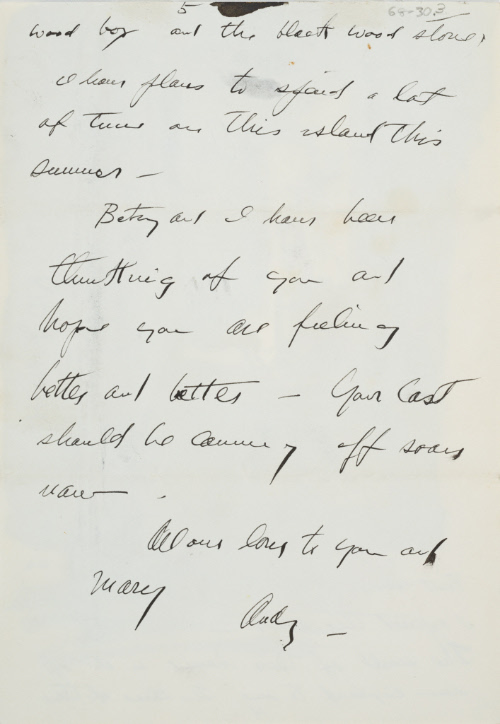 5
68-308
wood box and the black wood stove.
I have plans to spend a lot
of time on this island this
summer —
Betsy and I have been
thinking of you and
hope you are feeling
better and better — Your cast
should be coming off soon
now .
All our love to you and
Mary
Andy —